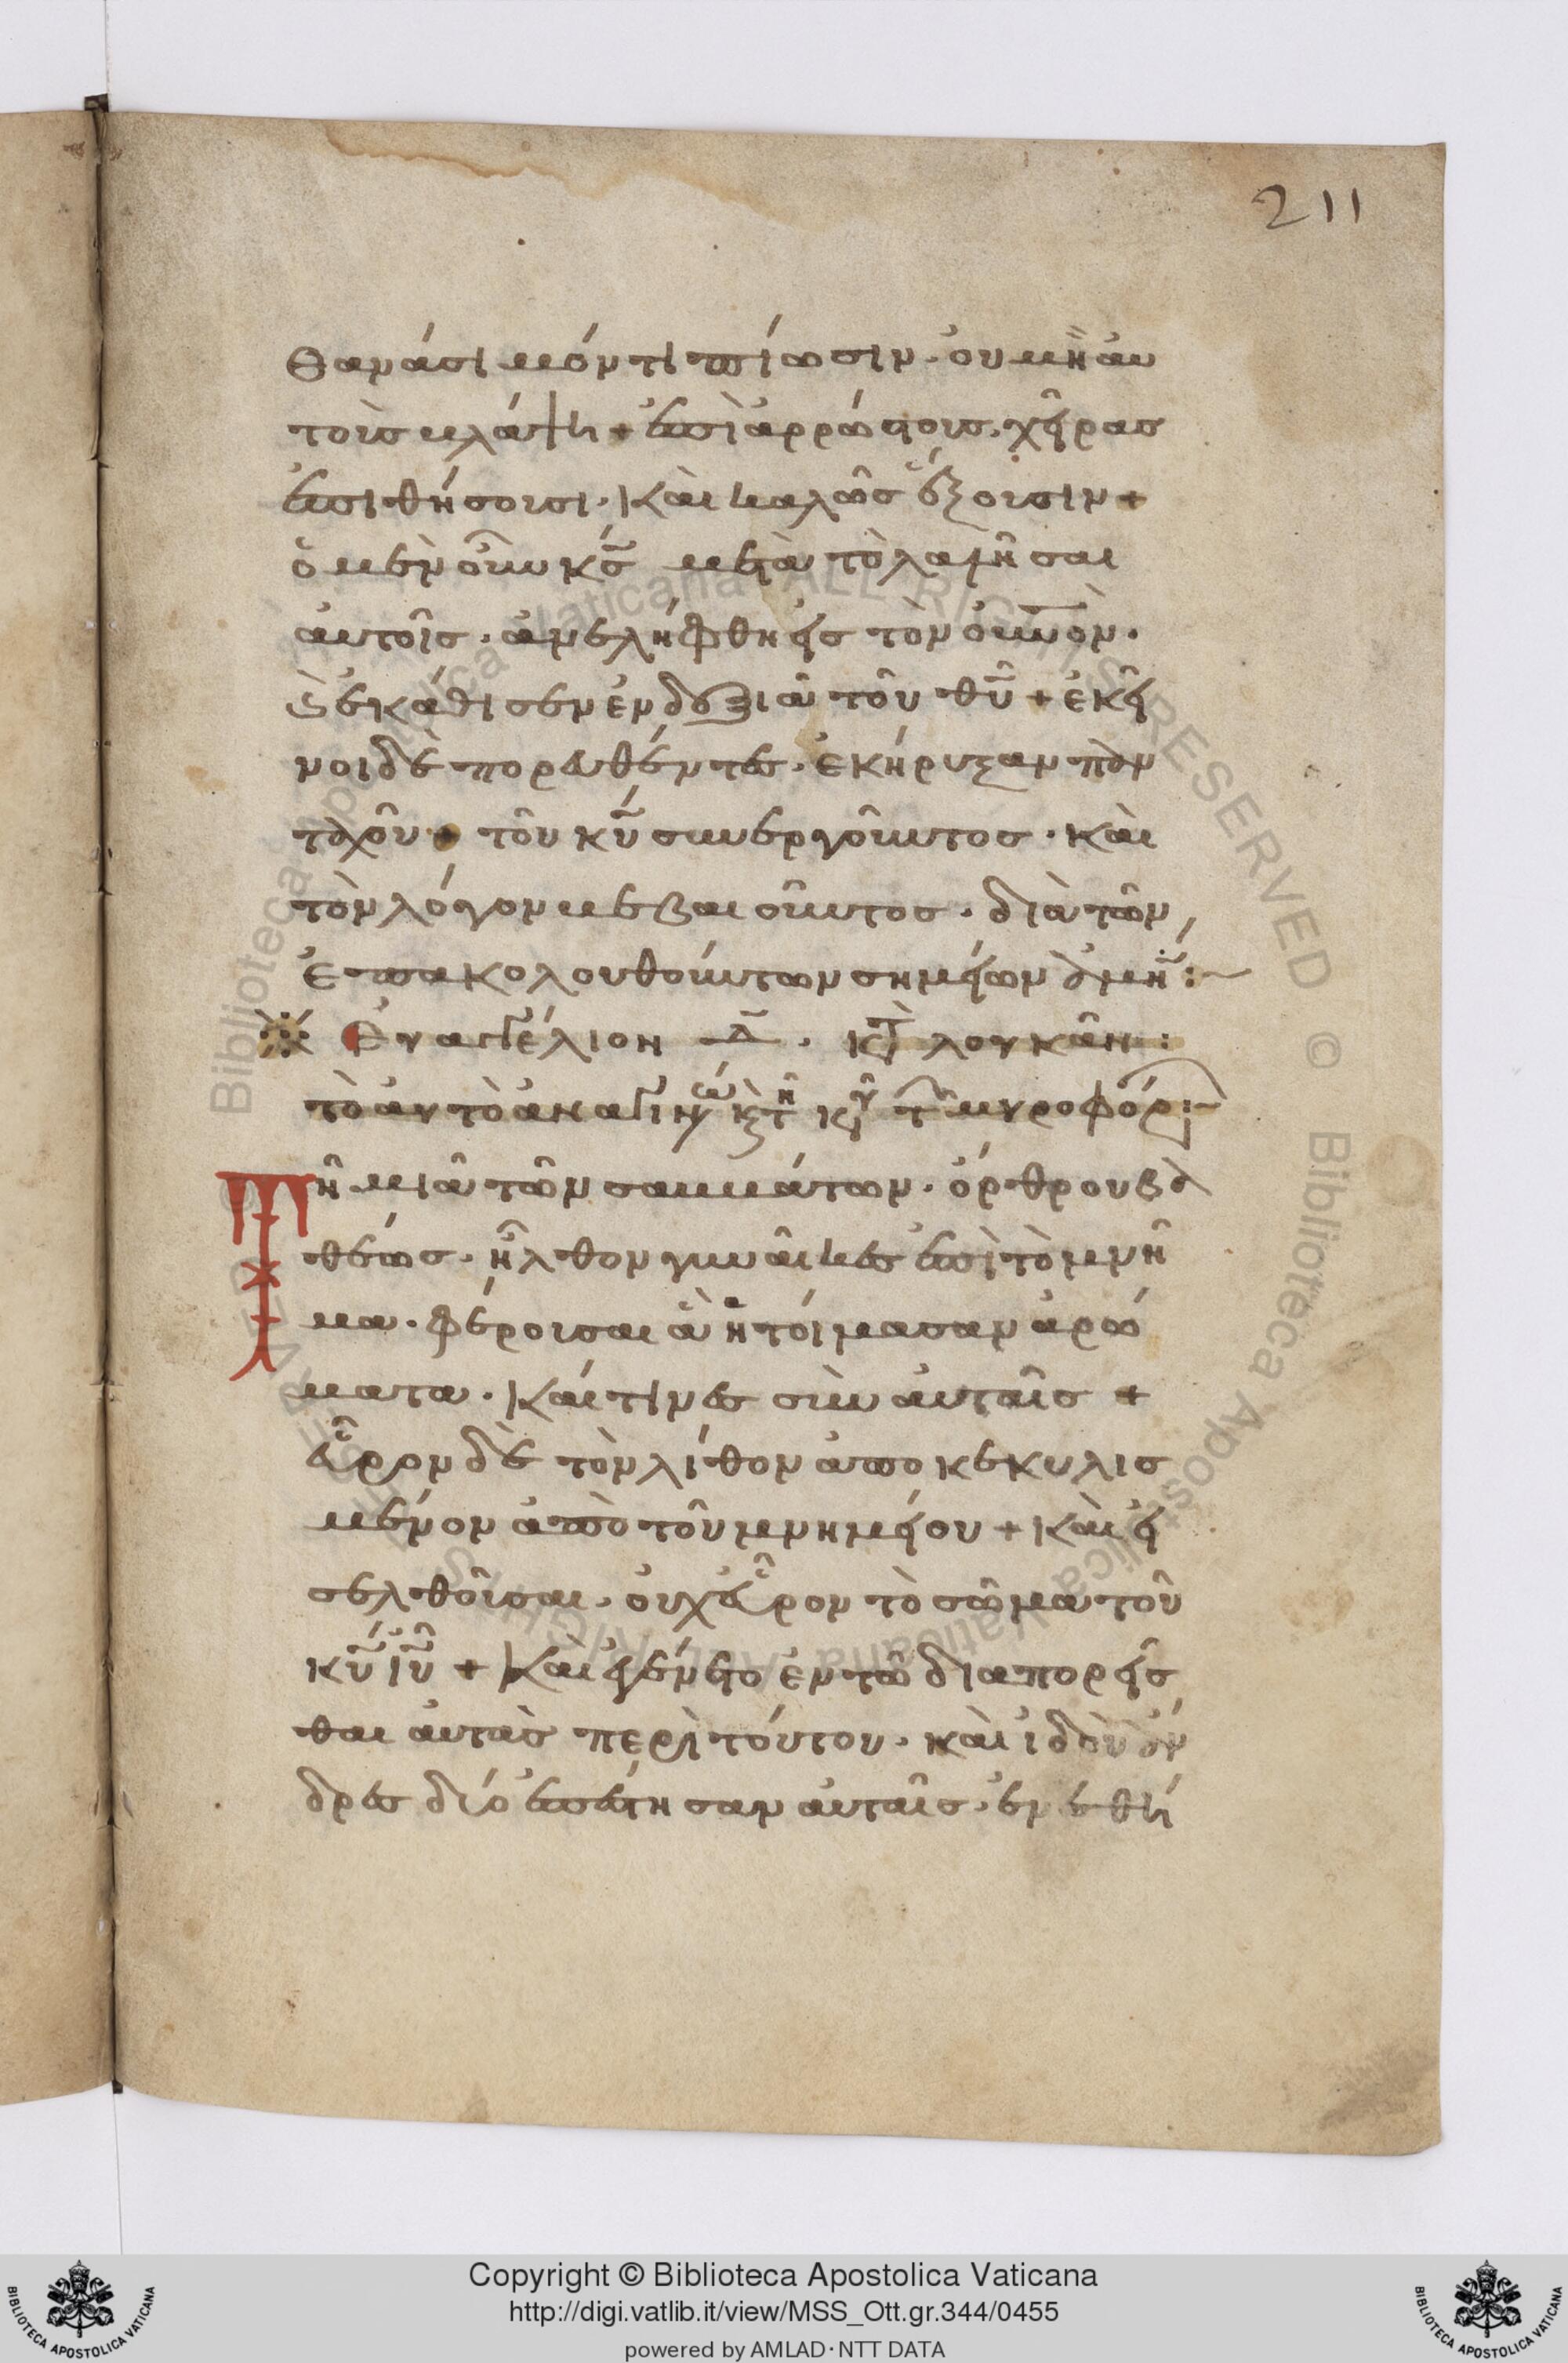 211
θανάσιμόν τι πίωσιν· ου μὴ ἀυ
τοὶς βλάψη + ἐπὶ ἀρρώστους· χεῖρας
ἐπιθήσουσι· Και καλῶς ἕξουσιν +
ὁ μὲν οὖν κς̅ μετὰ τὸ λαλῆσαι
ἀυτοῖς· ἀνελήφθη εἰς τὸν ὀυν̅ὸν·
Καὶ ἐκάθισεν ἐν δεξιᾶ τοῦ θυ̅ + ἐκεῖ
νοι δὲ πορευθέντες· ἐκήρυξαν παν
ταχοῦ + τοῦ κυ̅ συνεργοῦντος· και
τὸν λόγον βεβαιοῦντος· διὰ τῶν
ἐπακολουθούντων σημείων ἀμήν :~
Ευαγγέλιον Δ̅· κτ̀ λουκᾶν :
τὸ ἀυτὸ ἀναγινώ κ τῆ κυ τ μυροφόρ :~
Τῆ μιᾶ τῶν σαββάτων· ὄρθρου βα
θέως· ἦλθον γυναῖκες ἐπὶ τὸ μνῆ
μα· φέρουσαι ἃ ἡτοίμασαν ἀρώ
ματα· Καί τινες σὺν ἀυταῖς +
εὗρον δὲ τὸν λίθον ἀποκεκυλισ
μένον ἀπὸ τοῦ μνημείου + Και εἰ
σελθοῦσαι· ὀυχ εὗρον τὸ σῶμα τοῦ
κυ̅ ιυ̅ + Και ἐγένετο ἐν τῶ διαπορεῖσ
θαι ἀυτὰς περὶ τούτου· και ἰδοὺ ἄν
δρες δύο ἐπέστησαν ἀυταῖς· ἐν ἐσθή
Copyright © Biblioteca Apostolica Vaticana
http://digi.vatlib.it/view/MSS_Ott.gr.344/0455
powered by AMLAD·NTT DATA